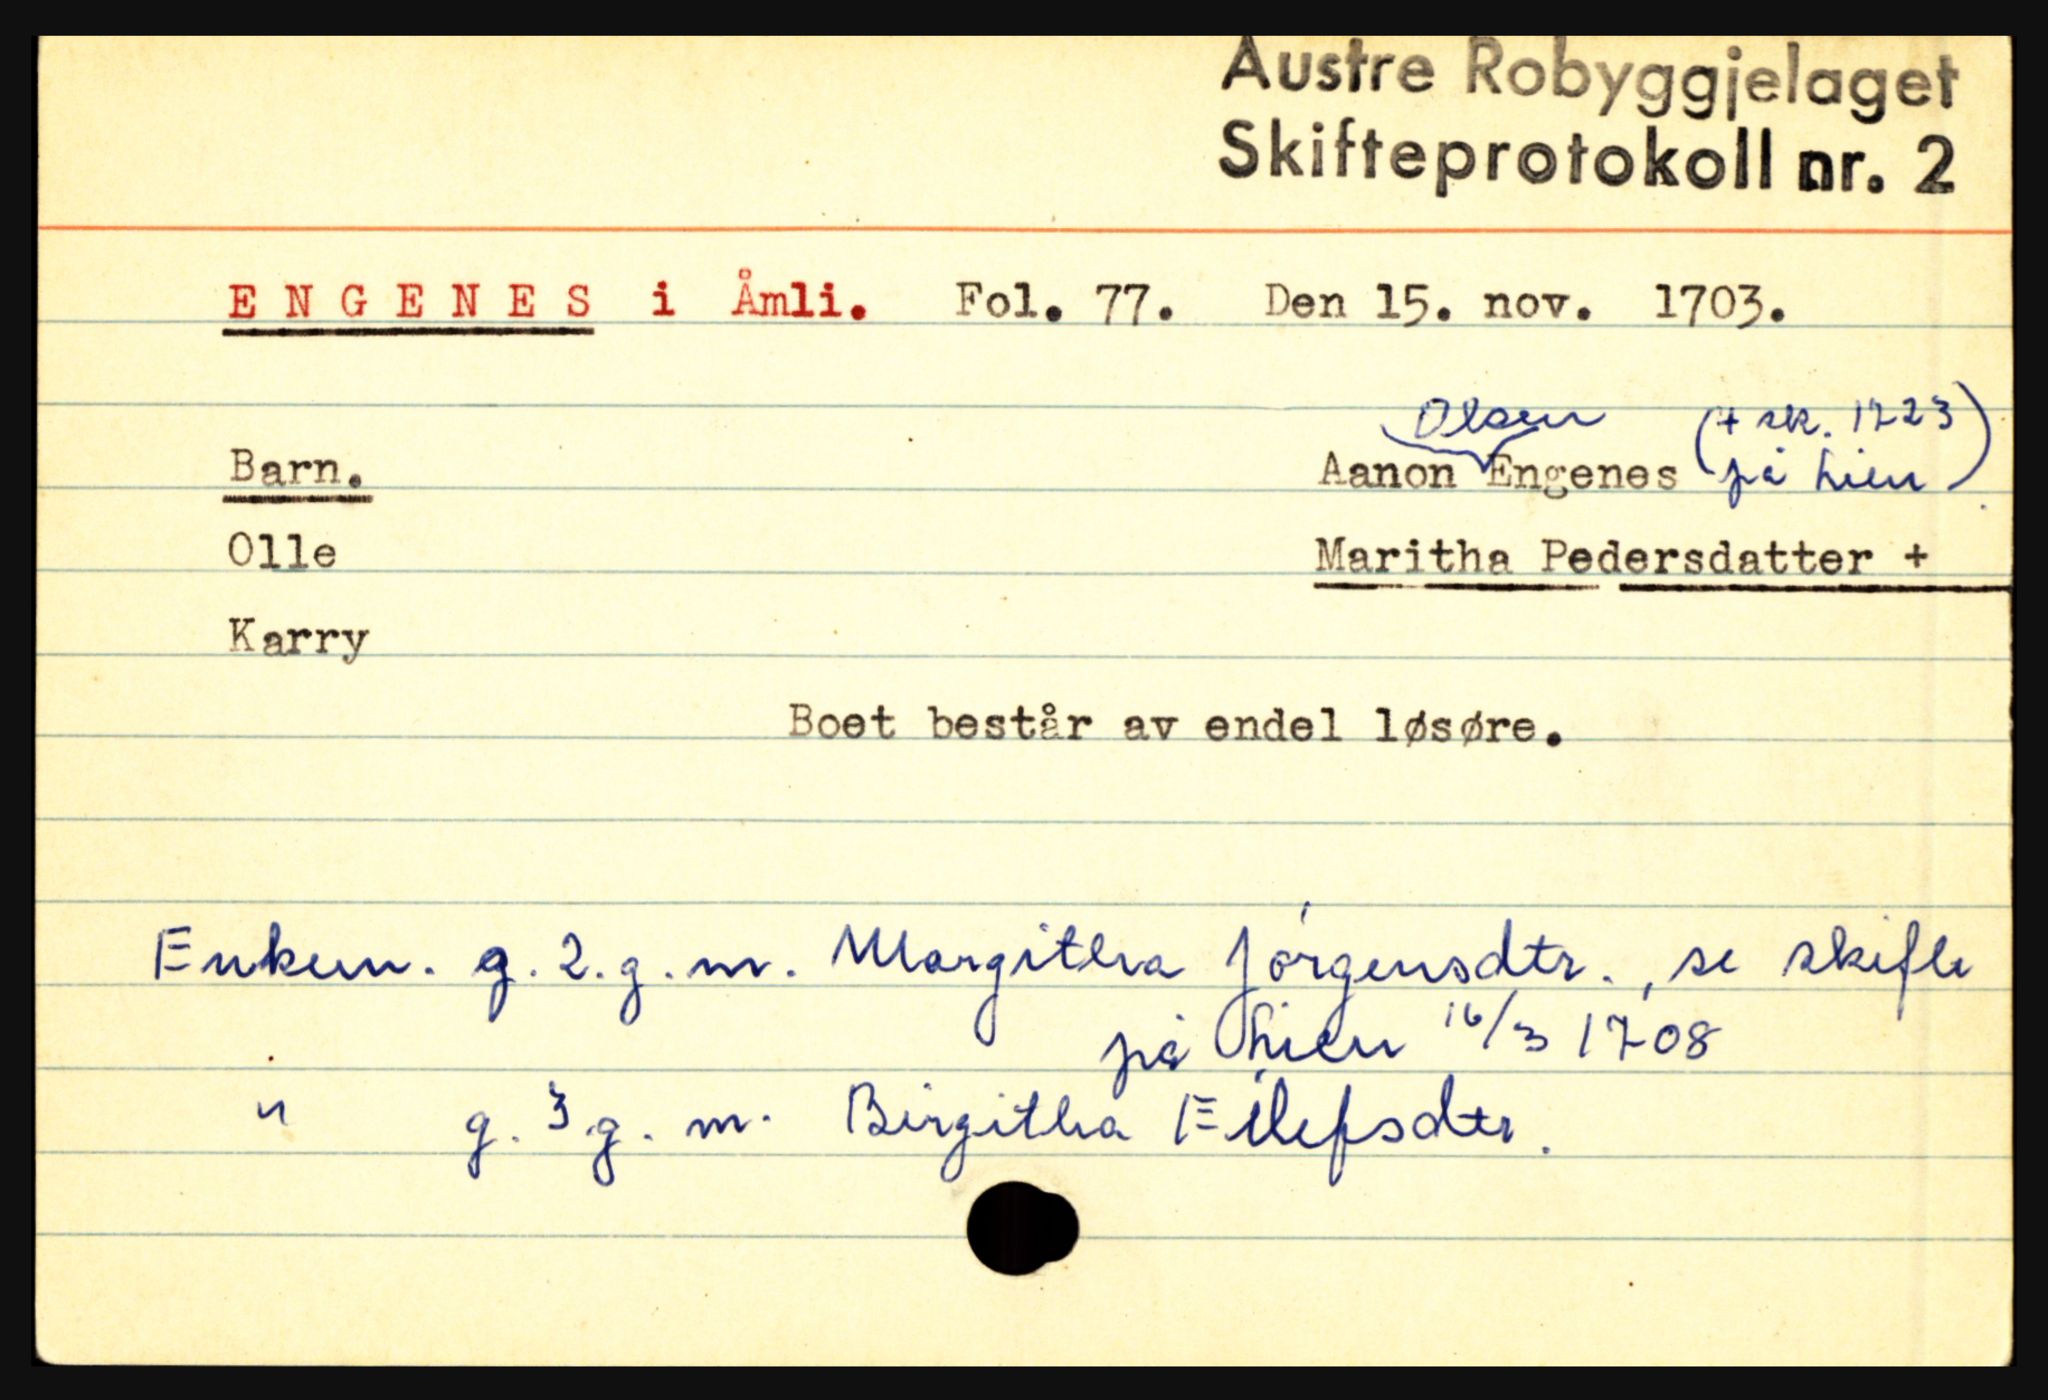 Austre Robyggjelaget
Skifteprotokoll nr. 2
ENGENES i Åmli. Fol. 77. Den 15. nov. 1703.
Olsen (+ sk. 1723
Barn. Aanon Engenes på Lien)
Olle Maritha Pedersdatter +
Karry
Boet består av endel løsøre.
Enkem. g. 2. g. m. Margitha Jørgensdtr., se skifte
på Lien 16/3 1708
" g. 3 g. m. Birgitha Eilefsdtr.